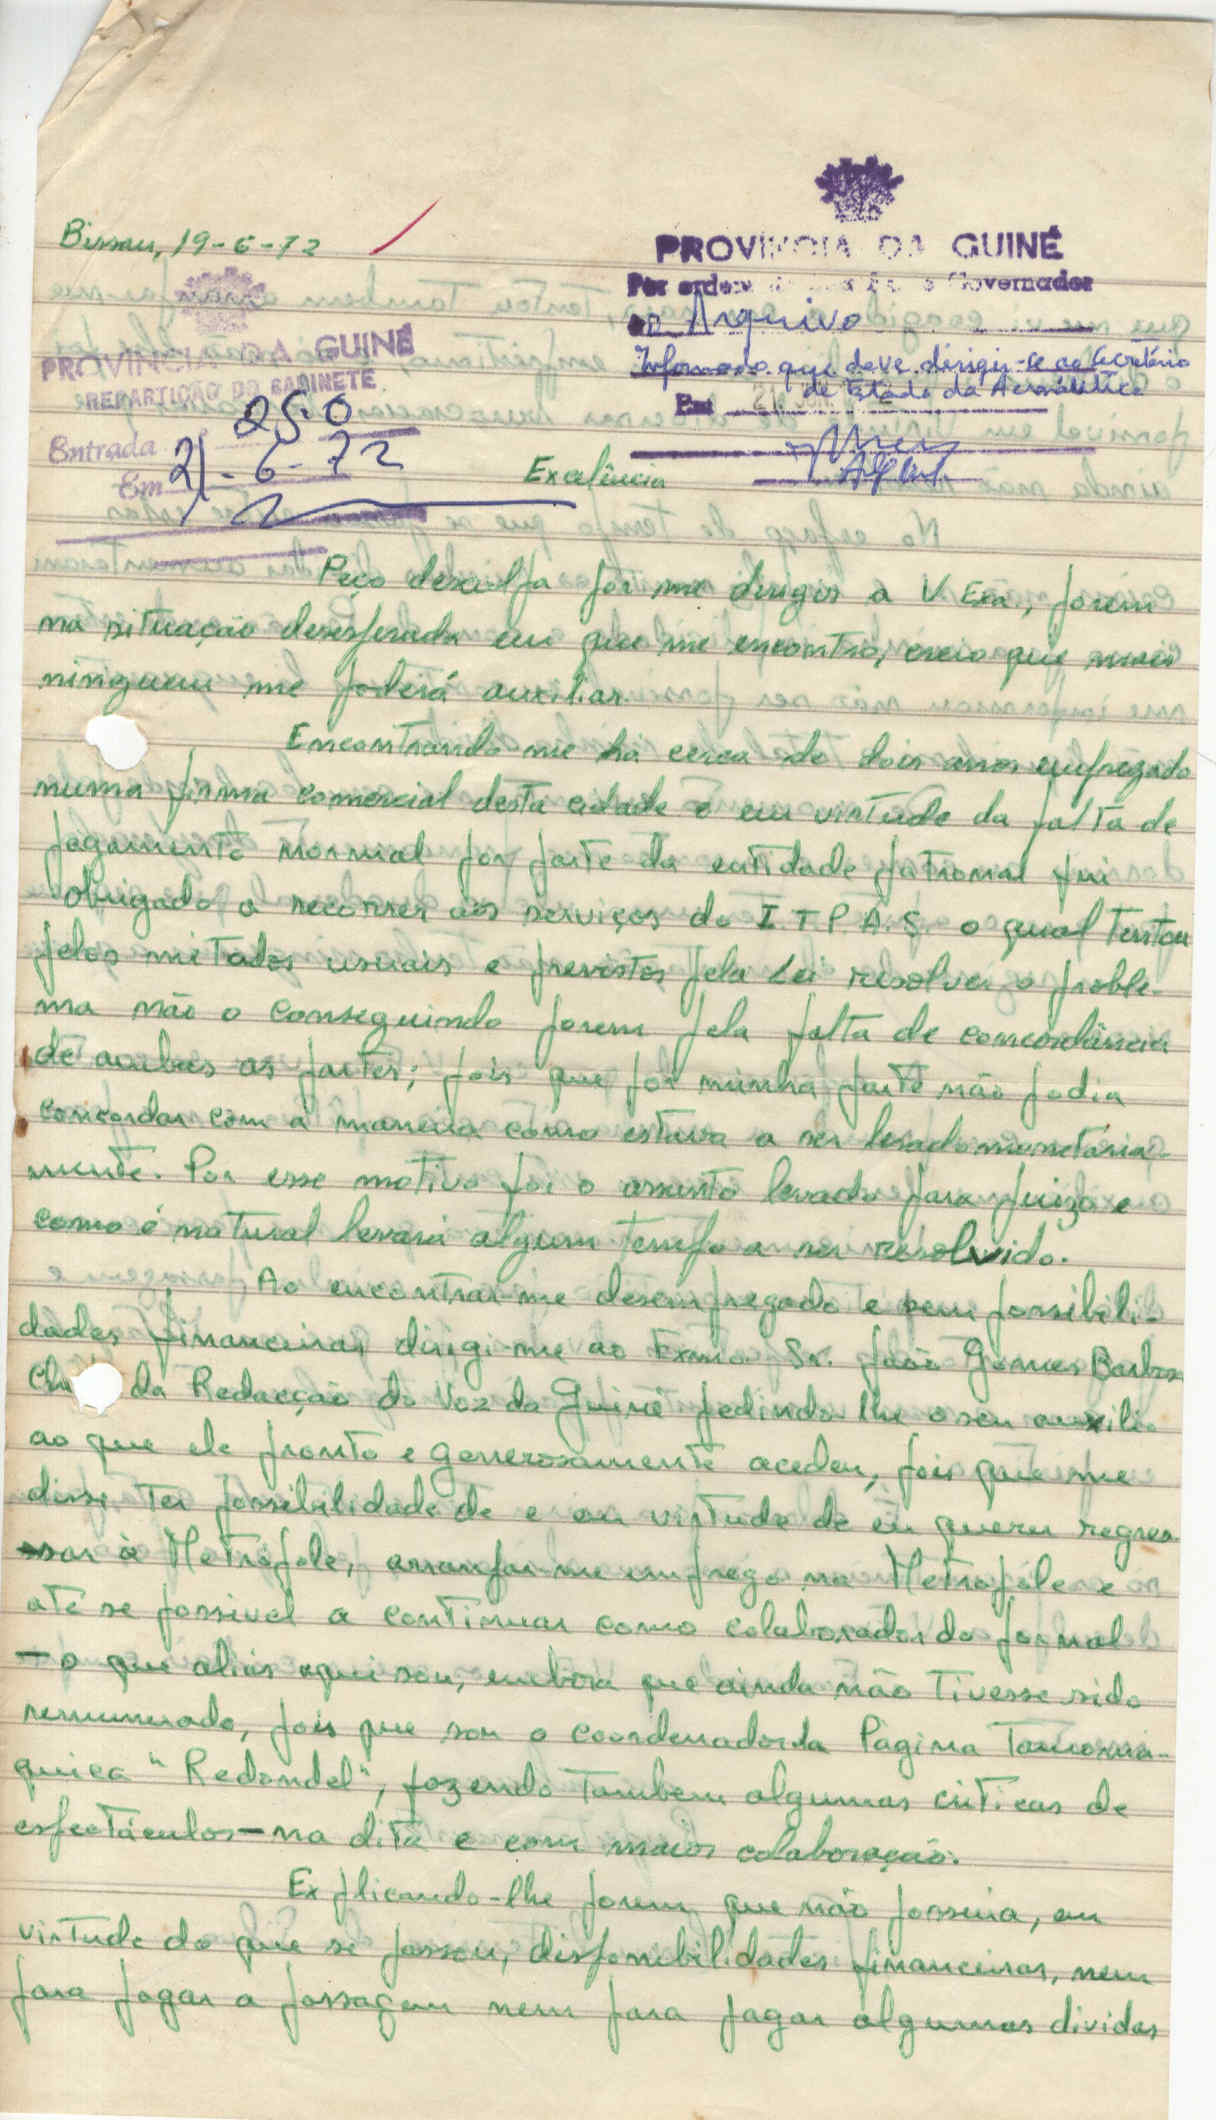 Bissau, 19-6-72
PROVINCIA DA GUINÉ
Por ordem Governador
ao Arquivo
Informado que deve dirigir-se ao Secretário
de Estado da Aeronáutica
Em
PROVINCIA DA GUINÉ
REPARTIÇÃO DO GABINETE
250
Entrada
Em 21-6-72
Excelência
Peço desculpa por me dirigir a V. Exa, porem
na situação desesperada em que me encontro, creio que mais
ninguem me poderá auxiliar.
Encontrando me há cerca de dois anos empregado
numa firma comercial desta cidade e em virtude da falta de
pagamento normal por parte da entidade patronal fui
obrigado a recorrer aos serviços do I T P A. S. o qual tentou
pelos metodos usuais e previstos pela Lei resolver o proble-
ma não o conseguindo porem pela falta de concordância
de ambas as partes; pois que por minha parte não podia
concordar com a maneira como estava a ser lesado monetária-
mente. Por esse motivo foi o assunto levado para Juizo e
como é natural levará algum tempo a ser resolvido.
Ao encontrar-me desempregado e sem possibili-
dades financeiras dirigi-me ao Exmo. Sr. João Gomes Barbosa
da Redacção do Voz da Guiné pedindo-lhe o seu auxilio
ao que ele pronto e generosamente acedeu, pois que me
disse ter possibilidade de e em virtude de eu querer regres-
sar à Metrópole, arranjar-me emprego na Metropole e
até se possivel a continuar como colaborador do jornal
- o que aliás aqui sou, embora que ainda não tivesse sido
remunerado, pois que sou o coordenador da Página Tauroma-
quica "Redondel", fazendo tambem algumas criticas de
espectáculos - na dita e com maior colaboração.
Explicando-lhe porem que não possuia, em
virtude do que se passou, disponibilidades financeiras, nem
para pagar a passagem nem para pagar algumas dividas